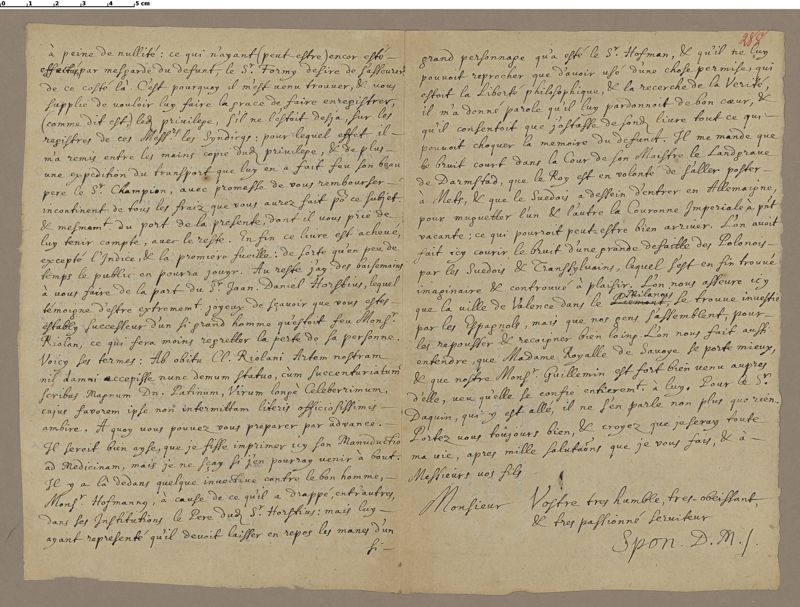 0 1 2 3 4 5 cm
388
à peine de nullité: ce qui n'ayant (peut estre) encor esté
effectué par mesgarde du defunt, le Sr. Formy desire de s'asseurer
de ce costé là. C'est pourquoy il m'est venu trouuer, & vous
supplie de vouloir luy faire la grace de faire enregistrer,
(comme dit est,) led. privilege, s'il ne l'estoit desja, sur les
registres de ces Messrs. les Syndicqs: pour lequel effet il
m'a remis entre les mains copie dud. privilege, & de plus
une expedition du transport que luy en a fait feu son beau
pere le Sr. Champion, avec promesse de vous rembourser
incontinent de tous les fraiz que vous aurez fait pour ce subjet
& mesmemt. du port de la presente, dont il vous prie de
luy tenir compte, avec le reste. Enfin ce livre est achevé,
excepté l'Indice, & la premiere fueille: de sorte qu'en peu de
temps le public en pourra jouyr. Au reste j'ay des baisemains
à vous faire de la part du Sr. Joan. Daniel Horstius, lequel
témoigne d'estre extremement joyeux de sçavoir que vous estes
estably successeur d'un si grand homme qu'estoit feu Monsr.
Riolan, ce qui fera moins regretter la perte de sa personne.
Voicy ses termes: Ab obitu Cl. Riolani Artem nostram
nil damni accepisse nunc demum statuo, cùm succenturiatum
scribas Magnum Dn. Patinum, Virum longè Celeberrimum,
cujus favorem ipse non intermittam literis officiosissimes
ambire. A quoy vous pouvez vous preparer par advance.
Il seroit bien ayse, que je fisse imprimer icy son Manuductio
ad Medicinam, mais je ne sçay si j'en pourray venir à bout.
Il y a là dedans quelque invective contre le bon homme,
Monsr. Hofmann, à cause de ce qu'il a drappé, entr'autres,
dans ses Institutions le Pere dud. Sr. Horstius: mais luy
ayant representé qu'il devoit laisser en repos les manes d'un
si
grand personnage qu'a esté le Sr. Hofman, & qu'il ne luy
pouvoit reprocher que d'avoir usé d'une chose permise, qui
estoit la Liberté philosophique, & la recherche de la Verité,
il m'a donné parole qu'il luy pardonnoit de bon cœur, &
qu'il consentoit que j'ostasse de sond. livre tout ce qui
pouvoit choquer la memoire du defunt. Il me mande que
le bruit court dans la Cour de son Maistre le Landgrave
de Darmstad, que le Roy est en volonté de s'aller poster
à Mets, & que le Suedois a dessein d'entrer en Allemaigne,
pour mugueter l'un & l'autre la Couronne Imperiale à pnt
vacante: ce qui pourroit peut-estre bien arriver. L'on avoit
fait icy courir le bruit d'une grande defaitte des Polonois
par les Suedois & Transylvains, lequel s'est en fin trouvé
imaginaire & controuvé à plaisir. L'on nous asseure icy
que la ville de Valence dans le Milanois se trouve investie
par les Espagnols, mais que nos gens s'assemblent, pour
les repousser & recogner bien loing. L'on nous fait aussi
entendre, que Madame Royalle de Savoye se porte mieux,
& que nostre Monsr. Guillemin est fort bien venu aupres
d'elle, veu qu'elle se confie entieremt. à luy. Pour le Sr.
Daquin, qui y est allé, il ne s'en parle non plus que rien.
Portez vous tousjours bien, & croyez que je seray toute
ma vie, apres mille salutaons que je vous fais, & à
Messieurs vos fils
Monsieur Vostre tres humble, tres-obeissant,
& tres passionné serviteur
Spon. D. M.